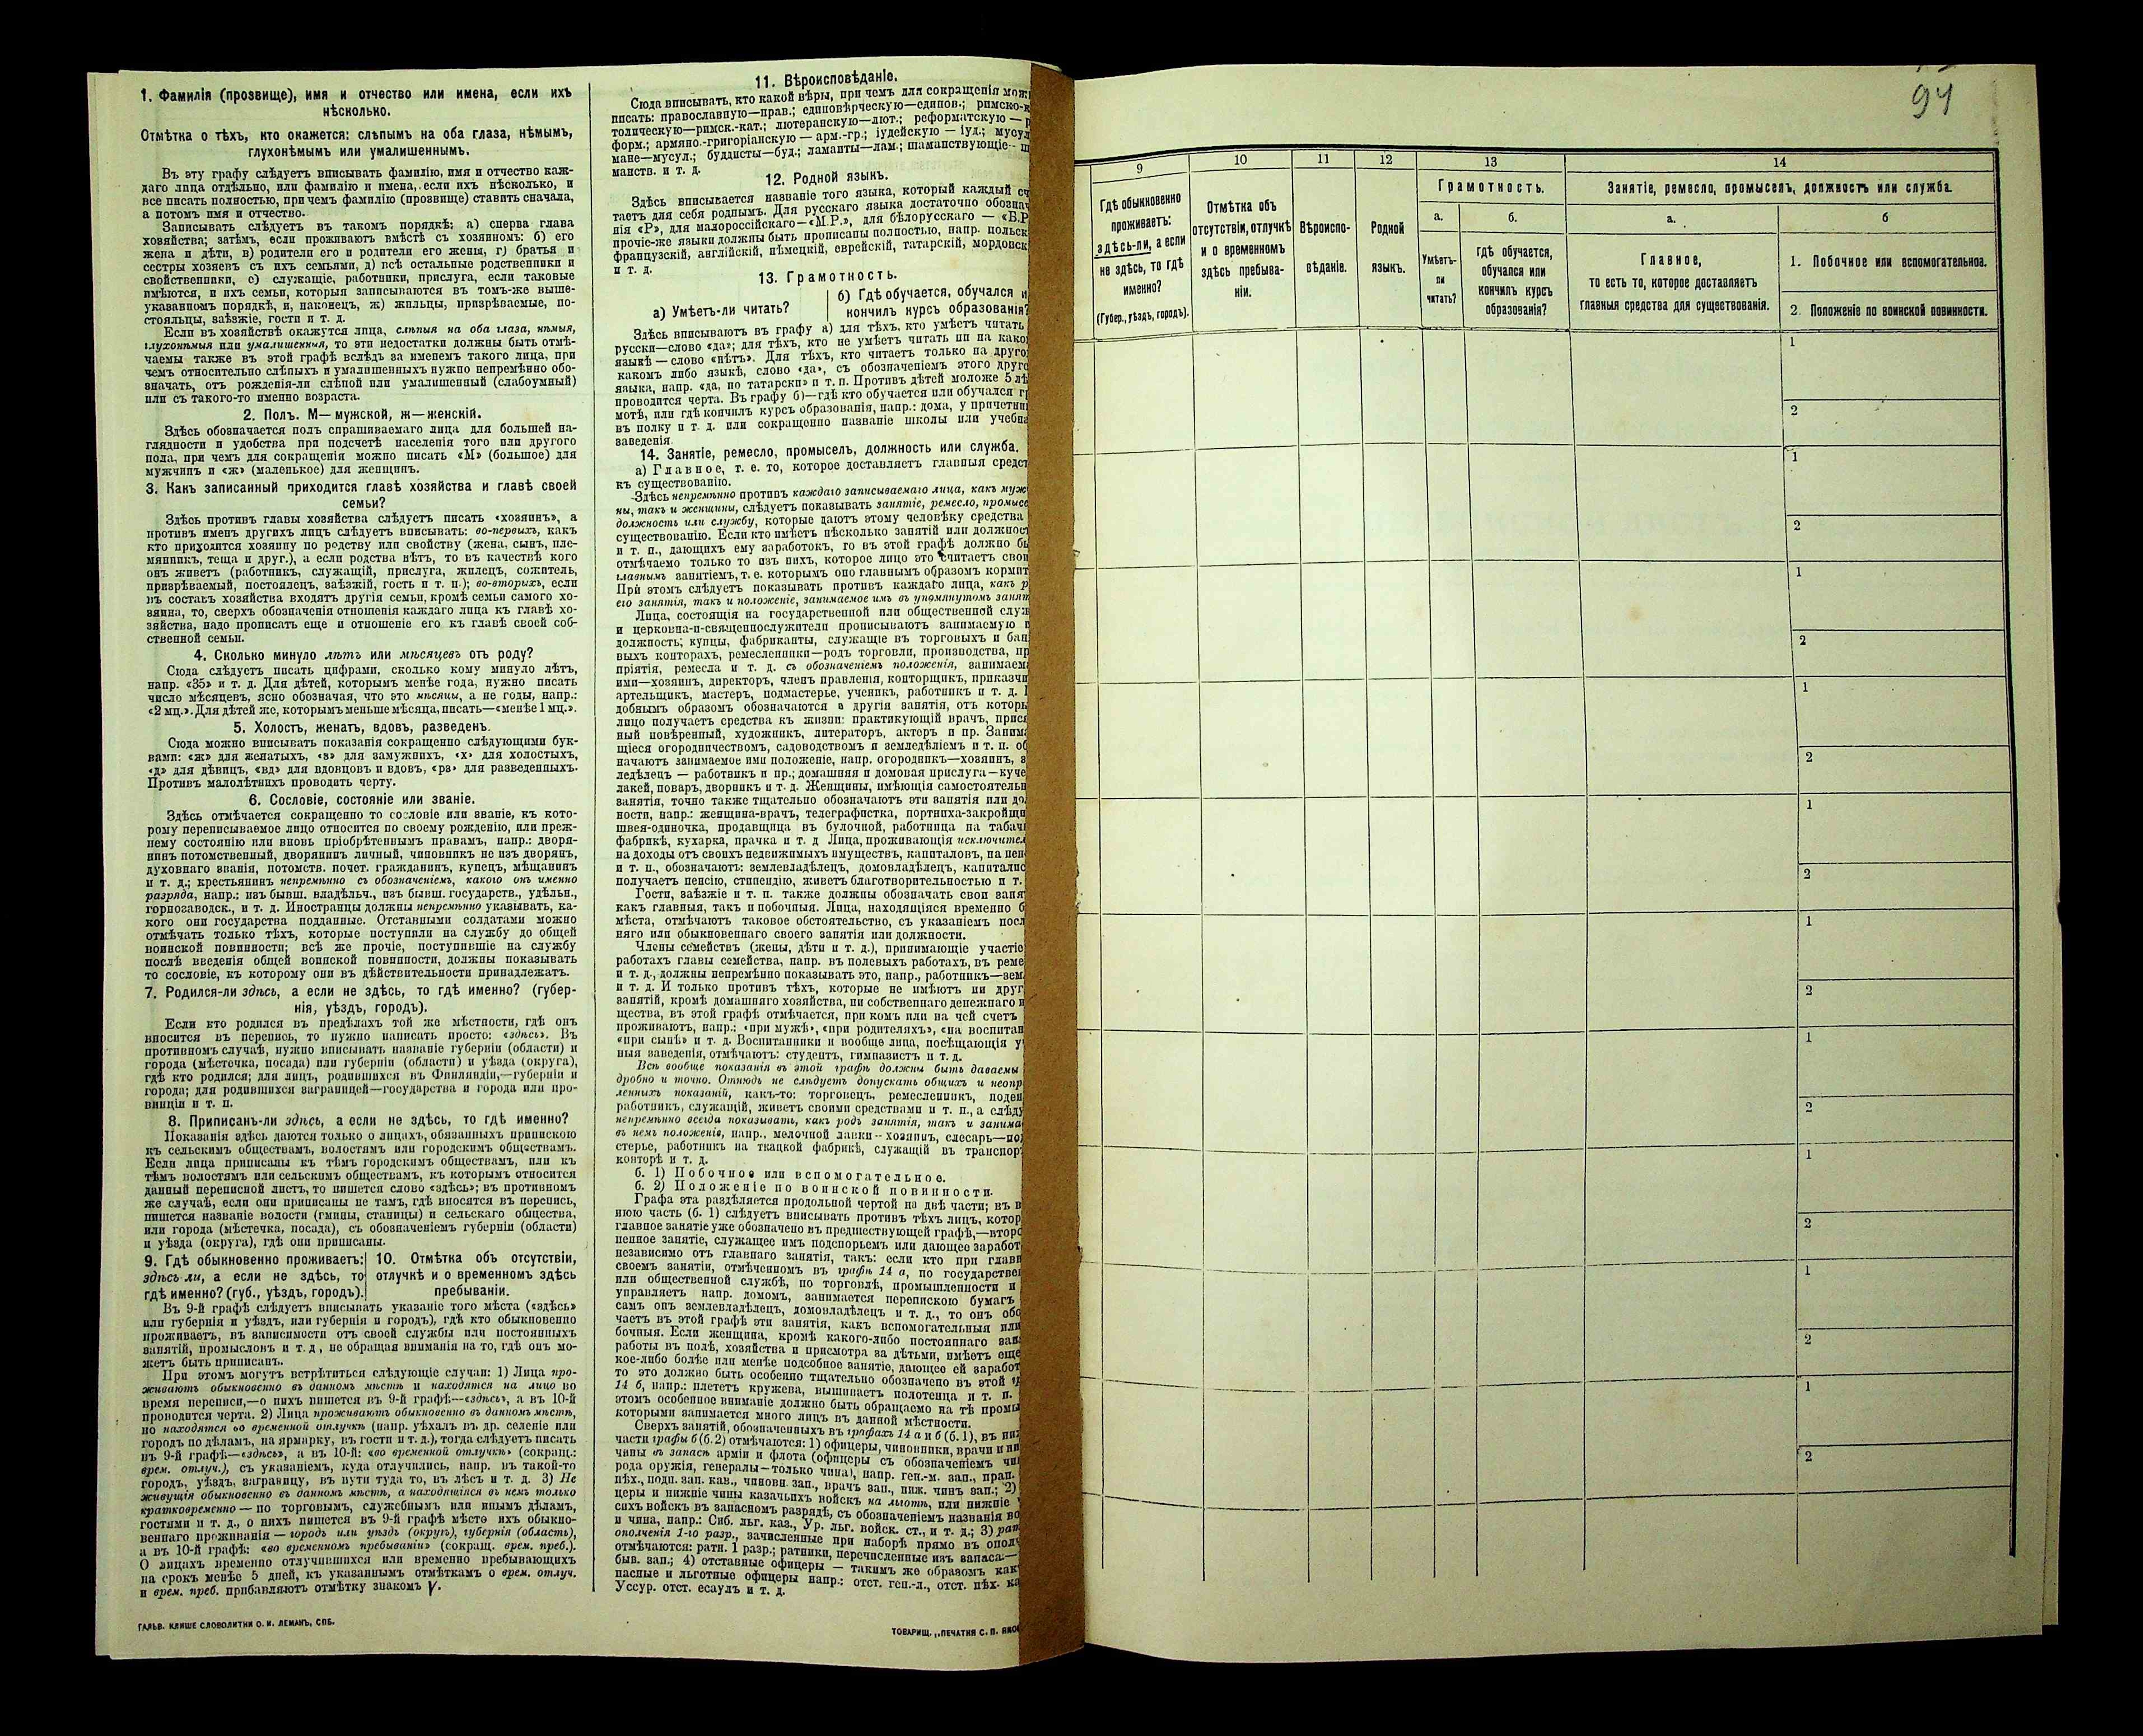 1. Фамилія (прозвище), имя и отчество или имена, если ихъ
нѣсколько.
Отмѣтка о тѣхъ, кто окажется: слѣпымъ на оба глаза, нѣмымъ,
глухонѣмымъ или умалишеннымъ.
Въ эту графу слѣдуетъ вписывать фамилію, имя и отчество каж-
даго лица отдѣльно, или фамилію и имена, если ихъ нѣсколько, и
все писать полностью, при чемъ фамилію (прозвище) ставить сначала,
а потомъ имя и отчество.
Записывать слѣдуетъ въ такомъ порядкѣ: а) сперва глава
хозяйства; затѣмъ, если проживаютъ вмѣстѣ съ хозяиномъ: б) его
жена и дѣти, в) родители его и родители его жены, г) братья и
сестры хозяевъ съ ихъ семьями, д) всѣ остальные родственники и
свойственники, е) служащіе, работники, прислуга, если таковые
имѣются, и ихъ семьи, которыя записываются въ томъ-же выше-
указанномъ порядкѣ, и, наконецъ, ж) жильцы, призрѣваемые, по-
стояльцы, заѣзжіе, гости и т. д.
Если въ хозяйствѣ окажутся лица, слѣпыя на оба глаза, нѣмыя,
глухонѣмыя или умалишенныя, то эти недостатки должны быть отмѣ-
чаемы также въ этой графѣ вслѣдъ за именемъ такого лица, при
чемъ относительно слѣпыхъ и умалишенныхъ нужно непремѣнно обо-
значать, отъ рожденія-ли слѣпой или умалишенный (слабоумный)
или съ такого-то именно возраста.
2. Полъ. М—мужской, ж—женскій.
Здѣсь обозначается полъ спрашиваемаго лица для большей на-
глядности и удобства при подсчетѣ населенія того или другого
пола, при чемъ для сокращенія можно писать «М» (большое) для
мужчинъ и «ж» (маленькое) для женщинъ.
3. Какъ записанный приходится главѣ хозяйства и главѣ своей
семьи?
Здѣсь противъ главы хозяйства слѣдуетъ писать «хозяинъ», а
противъ именъ другихъ лицъ слѣдуетъ вписывать: во-первыхъ, какъ
кто приходится хозяину по родству или свойству (жена, сынъ, пле-
мянникъ, теща и друг.), а если родства нѣтъ, то въ качествѣ кого
онъ живетъ (работникъ, служащій, прислуга, жилецъ, сожитель,
призрѣваемый, постоялецъ, заѣзжій, гость и т. п.); во-вторыхъ, если
въ составъ хозяйства входятъ другія семьи, кромѣ семьи самого хо-
зяина, то, сверхъ обозначенія отношенія каждаго лица къ главѣ хо-
зяйства, надо прописать еще и отношеніе его къ главѣ своей соб-
ственной семьи.
4. Сколько минуло лѣтъ или мѣсяцевъ отъ роду?
Сюда слѣдуетъ писать цифрами, сколько кому минуло лѣтъ,
напр. «35» и т. д. Для дѣтей, которымъ менѣе года, нужно писать
число мѣсяцевъ, ясно обозначая, что это мѣсяцы, а не годы, напр.:
«2 мц.». Для дѣтей же, которымъ меньше мѣсяца, писать—«менѣе 1 мц.».
5. Холостъ, женатъ, вдовъ, разведенъ.
Сюда можно вписывать показанія сокращенно слѣдующими бук-
вами: «ж» для женатыхъ, «з» для замужнихъ, «х» для холостыхъ,
«д» для дѣвицъ, «вд» для вдовцовъ и вдовъ, «рз» для разведенныхъ.
Противъ малолѣтнихъ проводить черту.
6. Сословіе, состояніе или званіе.
Здѣсь отмѣчается сокращенно то сословіе или званіе, къ кото-
рому переписываемое лицо относится по своему рожденію, или преж-
нему состоянію или вновь пріобрѣтеннымъ правамъ, напр.: дворя-
нинъ потомственный, дворянинъ личный, чиновникъ не изъ дворянъ,
духовнаго званія, потомств. почет. гражданинъ, купецъ, мѣщанинъ
и т. д.; крестьянинъ непремѣнно съ обозначеніемъ, какого онъ именно
разряда, напр.: изъ бывш. владѣльч., изъ бывш. государств., удѣльн.,
горнозаводск., и т. д. Иностранцы должны непремѣнно указывать, ка-
кого они государства подданные. Отставными солдатами можно
отмѣчать только тѣхъ, которые поступили на службу до общей
воинской повинности; всѣ же прочіе, поступившіе на службу
послѣ введенія общей воинской повинности, должны показывать
то сословіе, къ которому они въ дѣйствительности принадлежатъ.
7. Родился-ли здѣсь, а если не здѣсь, то гдѣ именно? (губер-
нія, уѣздъ, городъ).
Если кто родился въ предѣлахъ той же мѣстности, гдѣ онъ
вносится въ перепись, то нужно написать просто: «здѣсь». Въ
противномъ случаѣ, нужно вписывать названіе губерніи (области) и
города (мѣстечка, посада) или губерніи (области) и уѣзда (округа),
гдѣ кто родился; для лицъ, родившихся въ Финляндіи,—губерніи и
города; для родившихся заграницей—государства и города или про-
винціи и т. п.
8. Приписанъ-ли здѣсь, а если не здѣсь, то гдѣ именно?
Показанія здѣсь даются только о лицахъ, обязанныхъ припискою
къ сельскимъ обществамъ, волостямъ или городскимъ обществамъ.
Если лица приписаны къ тѣмъ городскимъ обществамъ, или къ
тѣмъ волостямъ или сельскимъ обществамъ, къ которымъ относится
данный переписной листъ, то пишется слово «здѣсь»; въ противномъ
же случаѣ, если они приписаны не тамъ, гдѣ вносятся въ перепись,
пишется названіе волости (гмины, станицы) и сельскаго общества,
или города (мѣстечка, посада), съ обозначеніемъ губерніи (области)
и уѣзда (округа), гдѣ они приписаны.
9. Гдѣ обыкновенно проживаетъ:
здѣсь-ли, а если не здѣсь, то
гдѣ именно? (губ., уѣздъ, городъ).
10. Отмѣтка объ отсутствіи,
отлучкѣ и о временномъ здѣсь
пребываніи.
Въ 9-й графѣ слѣдуетъ вписывать указаніе того мѣста («здѣсь»
или губернія и уѣздъ, или губернія и городъ), гдѣ кто обыкновенно
проживаетъ, въ зависимости отъ своей службы или постоянныхъ
занятій, промысловъ и т. д, не обращая вниманія на то, гдѣ онъ мо-
жетъ быть приписанъ.
При этомъ могутъ встрѣтиться слѣдующіе случаи: 1) Лица про-
живаютъ обыкновенно въ данномъ мѣстѣ и находятся на лицо во
время переписи,—о нихъ пишется въ 9-й графѣ—«здѣсь», а въ 10-й
проводится черта. 2) Лица проживаютъ обыкновенно въ данномъ мѣстѣ,
но находятся во временной отлучкѣ (напр. уѣхалъ въ др. селеніе или
городъ по дѣламъ, на ярмарку, въ гости и т. д.), тогда слѣдуетъ писать
въ 9-й графѣ—«здѣсь», а въ 10-й: «во временной отлучкѣ» (сокращ.:
врем. отлуч.), съ указаніемъ, куда отлучились, напр. въ такой-то
городъ, уѣздъ, заграницу, въ пути туда то, въ лѣсъ и т. д. 3) Не
живущія обыкновенно въ данномъ мѣстѣ, а находящіяся въ немъ только
кратковременно — по торговымъ, служебнымъ или инымъ дѣламъ,
гостями и т. д., о нихъ пишется въ 9-й графѣ мѣсто ихъ обыкно-
веннаго проживанія — городъ или уѣздъ (округъ), губернія (область),
а въ 10-й графѣ: «во временномъ пребываніи» (сокращ. врем. преб.).
О лицахъ временно отлучившихся или временно пребывающихъ
на срокъ менѣе 5 дней, къ указаннымъ отмѣткамъ о врем. отлуч.
и врем. преб. прибавляютъ отмѣтку знакомъ V.
ГАЛЬВ. КЛИШЕ СЛОВОЛИТНИ О. И. ЛЕМАНЪ, СПБ.
11. Вѣроисповѣданіе.
Сюда вписывать, кто какой вѣры, при чемъ для сокращенія мож
писать: православную—прав.; единовѣрческую—единов.; римско-к
толическую—римск.-кат.; лютеранскую—лют.; реформатскую — р
форм.; армяно-григоріанскую — арм.-гр.; іудейскую — іуд.; мусул
мане—мусул.; буддисты—буд.; ламаиты—лам.; шаманствующіе— ш
манств. и т. д.
12. Родной языкъ.
Здѣсь вписывается названіе того языка, который каждый сч
таетъ для себя роднымъ. Для русскаго языка достаточно обознач
нія «Р», для малороссійскаго—«М.Р.», для бѣлорусскаго — «Б.Р
прочіе-же языки должны быть прописаны полностью, напр. польск
французскій, англійскій, нѣмецкій, еврейскій, татарскій, мордовск
и т. д.
13. Грамотность.
а) Умѣетъ-ли читать?
б) Гдѣ обучается, обучался и
кончилъ курсъ образованія?
Здѣсь вписываютъ въ графу а) для тѣхъ, кто умѣетъ читать
русски—слово «да»; для тѣхъ, кто не умѣетъ читать ни на како
языкѣ — слово «нѣтъ». Для тѣхъ, кто читаетъ только на друго
какомъ либо языкѣ, слово «да», съ обозначеніемъ этого друго
языка, напр. «да, по татарски» и т. п. Противъ дѣтей моложе 5 лѣ
проводится черта. Въ графу б)—гдѣ кто обучается или обучался гр
мотѣ, или гдѣ кончилъ курсъ образованія, напр.: дома, у причетни
въ полку и т. д. или сокращенно названіе школы или учебна
заведенія.
14. Занятіе, ремесло, промыселъ, должность или служба.
а) Главное, т. е. то, которое доставляетъ главныя средст
къ существованію.
Здѣсь непремѣнно противъ каждаго записываемаго лица, какъ муж
ны, такъ и женщины, слѣдуетъ показывать занятіе, ремесло, промысе
должность или службу, которые даютъ этому человѣку средства
существованію. Если кто имѣетъ нѣсколько занятій или должност
и т. п., дающихъ ему заработокъ, то въ этой графѣ должно бы
отмѣчаемо только то изъ нихъ, которое лицо это считаетъ свои
главнымъ занятіемъ, т. е. которымъ оно главнымъ образомъ кормит
При этомъ слѣдуетъ показывать противъ каждаго лица, какъ р
его занятія, такъ и положеніе, занимаемое имъ въ упомянутомъ занят
Лица, состоящія на государственной или общественной служ
и церковна-и-священнослужители прописываютъ занимаемую и
должность; купцы, фабриканты, служащіе въ торговыхъ и бан
выхъ конторахъ, ремесленники—родъ торговли, производства, пр
пріятія, ремесла и т. д. съ обозначеніемъ положенія, занимаем
ими—хозяинъ, директоръ, членъ правленія, конторщикъ, приказчи
артельщикъ, мастеръ, подмастерье, ученикъ, работникъ и т. д.
добнымъ образомъ обозначаются и другія занятія, отъ которы
лицо получаетъ средства къ жизни: практикующій врачъ, прися
ный повѣренный, художникъ, литераторъ, актеръ и пр. Заним
щіеся огородничествомъ, садоводствомъ и земледѣліемъ и т. п. об
начаютъ занимаемое ими положеніе, напр. огородникъ—хозяинъ, з
ледѣлецъ — работникъ и пр.; домашняя и домовая прислуга—куче
лакей, поваръ, дворникъ и т. д. Женщины, имѣющія самостоятельн
занятія, точно также тщательно обозначаютъ эти занятія или до
ности, напр.: женщина-врачъ, телеграфистка, портниха-закройщи
швея-одиночка, продавщица въ булочной, работница на табач
фабрикѣ, кухарка, прачка и т. д Лица, проживающія исключител
на доходы отъ своихъ недвижимыхъ имуществъ, капиталовъ, на пен
и т. п., обозначаютъ: землевладѣлецъ, домовладѣлецъ, капиталис
получаетъ пенсію, стипендію, живетъ благотворительностью и т.
Гости, заѣзжіе и т. п. также должны обозначать свои заня
какъ главныя, такъ и побочныя. Лица, находящіяся временно б
мѣста, отмѣчаютъ таковое обстоятельство, съ указаніемъ посл
няго или обыкновеннаго своего занятія или должности.
Члены семействъ (жены, дѣти и т. д.), принимающіе участіе
работахъ главы семейства, напр. въ полевыхъ работахъ, въ реме
и т. д., должны непремѣнно показывать это, напр., работникъ—зем
и т. д. И только противъ тѣхъ, которые не имѣютъ ни друг
занятій, кромѣ домашняго хозяйства, ни собственнаго денежнаго и
щества, въ этой графѣ отмѣчается, при комъ или на чей счетъ
проживаютъ, напр.: «при мужѣ», «при родителяхъ», «на воспитан
«при сынѣ» и т. д. Воспитанники и вообще лица, посѣщающія у
ныя заведенія, отмѣчаютъ: студентъ, гимназистъ и т. д.
Всѣ вообще показанія въ этой графѣ должны быть даваемы
дробно и точно. Отнюдь не слѣдуетъ допускать общихъ и неопр
ленныхъ показаній, какъ-то: торговецъ, ремесленникъ, поден
работникъ, служащій, живетъ своими средствами и т. п., а слѣду
непремѣнно всегда показывать, какъ родъ занятія, такъ и занима
въ немъ положеніе, напр., мелочной лавки--хозяинъ, слесарь—по
стерье, работникъ на ткацкой фабрикѣ, служащій въ транспор
конторѣ и т. д.
б. 1) Побочное или вспомогательное.
б. 2) Положеніе по воинской повинности.
Графа эта раздѣляется продольной чертой на двѣ части; въ в
нюю часть (б. 1) слѣдуетъ вписывать противъ тѣхъ лицъ, котор
главное занятіе уже обозначено въ предшествующей графѣ,—второ
пенное занятіе, служащее имъ подспорьемъ или дающее заработ
независимо отъ главнаго занятія, такъ: если кто при главн
своемъ занятіи, отмѣченномъ въ графѣ 14 а, по государстве
или общественной службѣ, по торговлѣ, промышленности и
управляетъ напр. домомъ, занимается перепискою бумагъ
самъ онъ землевладѣлецъ, домовладѣлецъ и т. д., то онъ обо
чаетъ въ этой графѣ эти занятія, какъ вспомогательныя или
бочныя. Если женщина, кромѣ какого-либо постояннаго зан
работы въ полѣ, хозяйства и присмотра за дѣтьми, имѣетъ еще
кое-либо болѣе или менѣе подсобное занятіе, дающее ей заработ
то это должно быть особенно тщательно обозначено въ этой г
14 б, напр.: плететъ кружева, вышиваетъ полотенца и т. п.
этомъ особенное вниманіе должно быть обращаемо на тѣ промы
которыми занимается много лицъ въ данной мѣстности.
Сверхъ занятій, обозначенныхъ въ графахъ 14 а и б (б. 1), въ ни
части графы б (б. 2) отмѣчаются: 1) офицеры, чиновники, врачи и ни
чины въ запасѣ арміи и флота (офицеры съ обозначеніемъ чи
рода оружія, генералы—только чина), напр. ген.-м. зап., прап.
пѣх., подп. зап. кав., чиновн. зап., врачъ зап., ниж. чинъ зап.; 2)
церы и нижніе чины казачьихъ войскъ на льготѣ, или нижніе
сихъ войскъ въ запасномъ разрядѣ, съ обозначеніемъ названія во
и чина, напр.: Сиб. льг. каз., Ур. льг. войск. ст., и т. д.; 3) рат
ополченія 1-го разр., зачисленные при наборѣ прямо въ опол
отмѣчаются: ратн. 1 разр.; ратники, перечисленные изъ запаса:—
быв. зап.; 4) отставные офицеры — такимъ же образомъ как
пасные и льготные офицеры напр.: отст. ген.-л., отст. пѣх. ка
Уссур. отст. есаулъ и т. д.
ТОВАРИЩ. „ПЕЧАТНЯ С. П. ЯКО
94
9
10
11
12
13
14
Гдѣ обыкновенно
проживаетъ:
здѣсь-ли, а если
не здѣсь, то гдѣ
именно?
(Губер., уѣздъ, городъ).
Отмѣтка объ
отсутствіи, отлучкѣ
и о временномъ
здѣсь пребыва-
ніи.
Вѣроиспо-
вѣданіе.
Родной
языкъ.
Грамотность.
а.
б.
Умѣетъ-
ли
читать?
Гдѣ обучается,
обучался или
кончилъ курсъ
образованія?
Занятіе, ремесло, промыселъ, должность или служба.
а.
б
Главное,
то есть то, которое доставляетъ
главныя средства для существованія.
1. Побочное или вспомогательное.
2. Положеніе по воинской повинности.
1
2
1
2
1
2
1
2
1
2
1
2
1
2
1
2
1
2
1
2